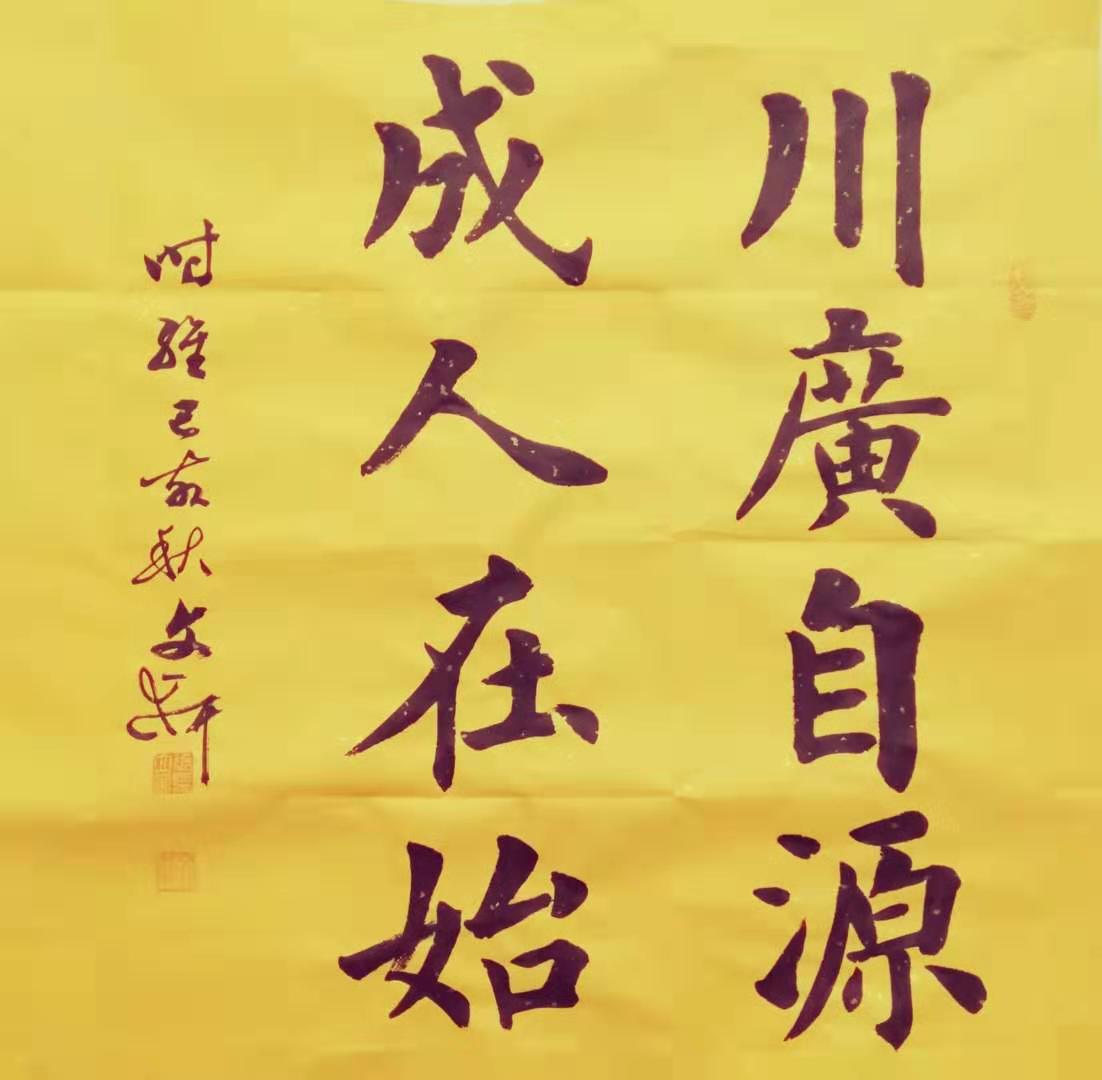 川廣自源
成人在始
时维己亥秋文